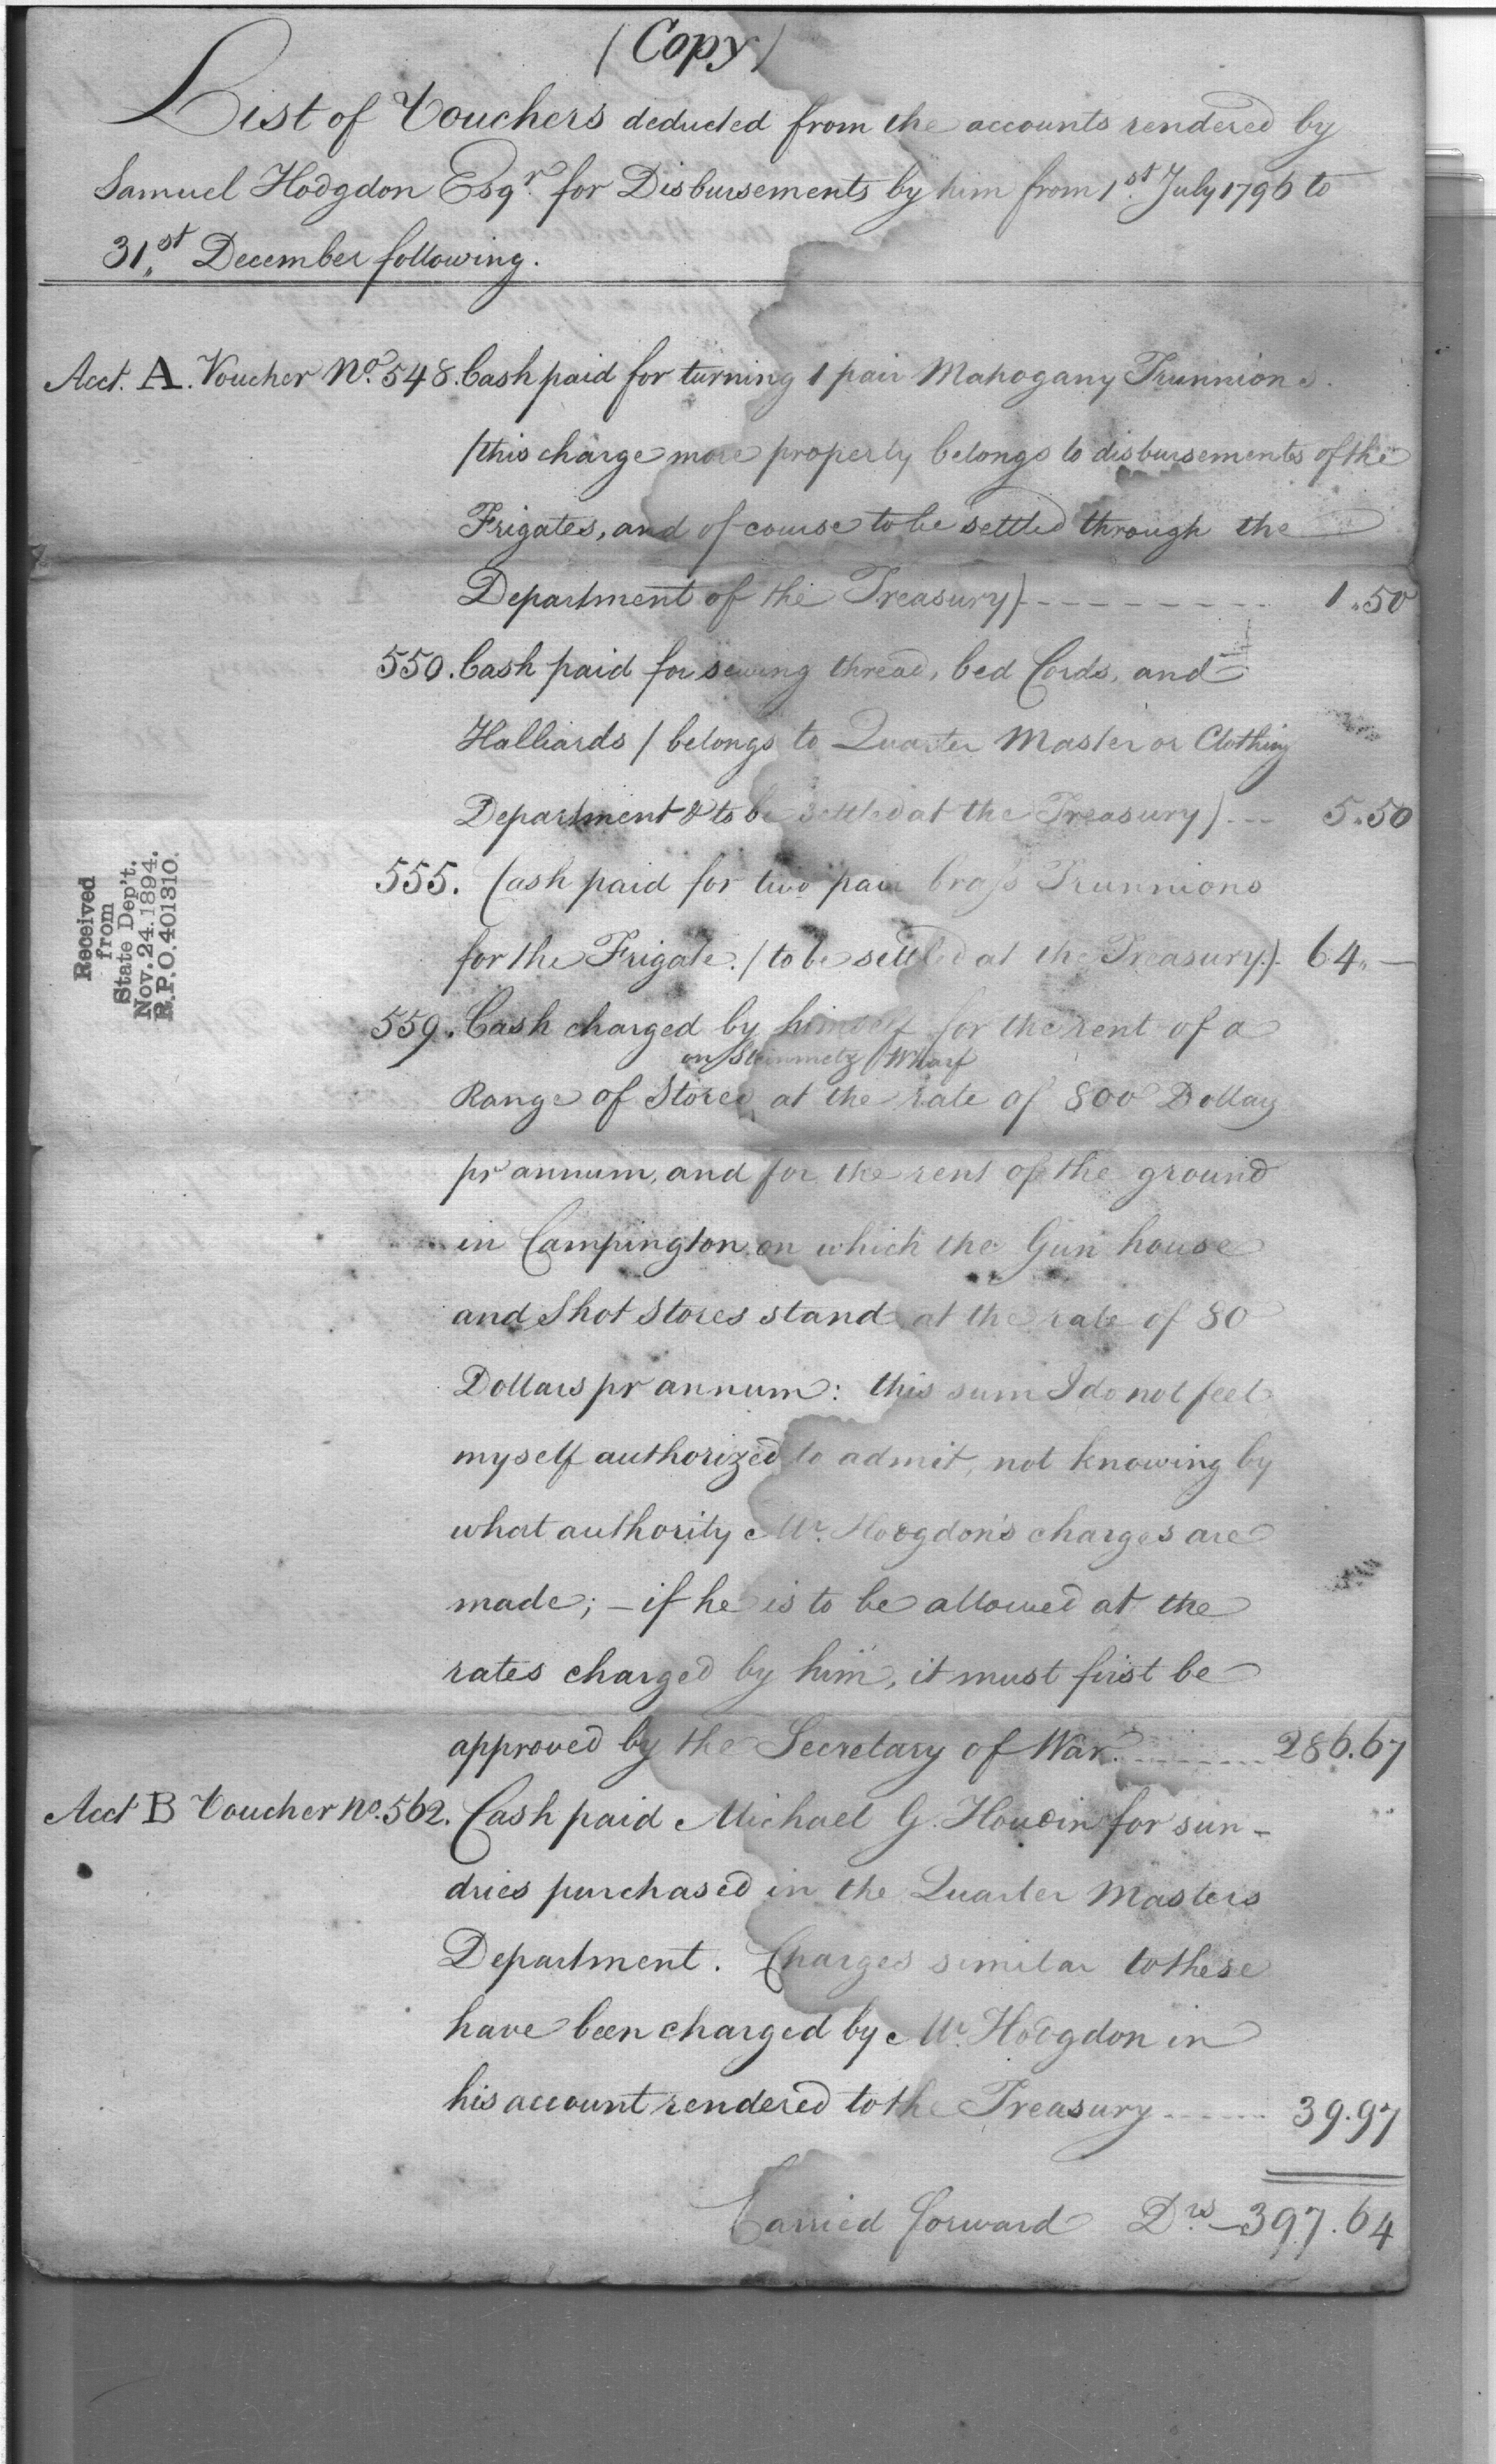 (Copy)
List of Vouchers deducted from the accounts rendered by
Samuel Hodgdon Esqr. for Disbursements by him from 1st. July 1796 to
31st. December following.
Acct. A. Voucher No. 548. Cash paid for turning 1 pair Mahogany Trunnions.
/this charge more properly belongs to disbursements of the
Frigates, and of course to be settled through the
Department of the Treasury) - - - - - - - - - 1.50
550. Cash paid for sewing thread, bed Cords, and
Halliards / belongs to Quarter Master or Clothing
Department & to be settled at the Treasury) - - - 5.50
555. Cash paid for two pair brass Trunnions
for the Frigate. / to be settled at the Treasury.) 64. —
559. Cash charged by himself for the rent of a
on Steinmetz Wharf
Range of Stores at the rate of 800 Dollars
pr annum, and for the rent of the ground
in Campington on which the Gun house
and Shot Stores stand at the rate of 80
Dollars pr annum: this sum I do not feel
myself authorized to admit, not knowing by
what authority Mr. Hodgdon's charges are
made; — if he is to be allowed at the
rates charged by him, it must first be
approved by the Secretary of War. - - - - - - - 286.67
Acct B Voucher No. 562. Cash paid Michael G. Houdin for sun-
dries purchased in the Quarter Masters
Department. Charges similar to these
have been charged by Mr. Hodgdon in
his account rendered to the Treasury - - - - - - 39.97
Carried forward Drs — 397.64
Received
from
State Dep't.
Nov. 24. 1894.
R.P.O. 401310.